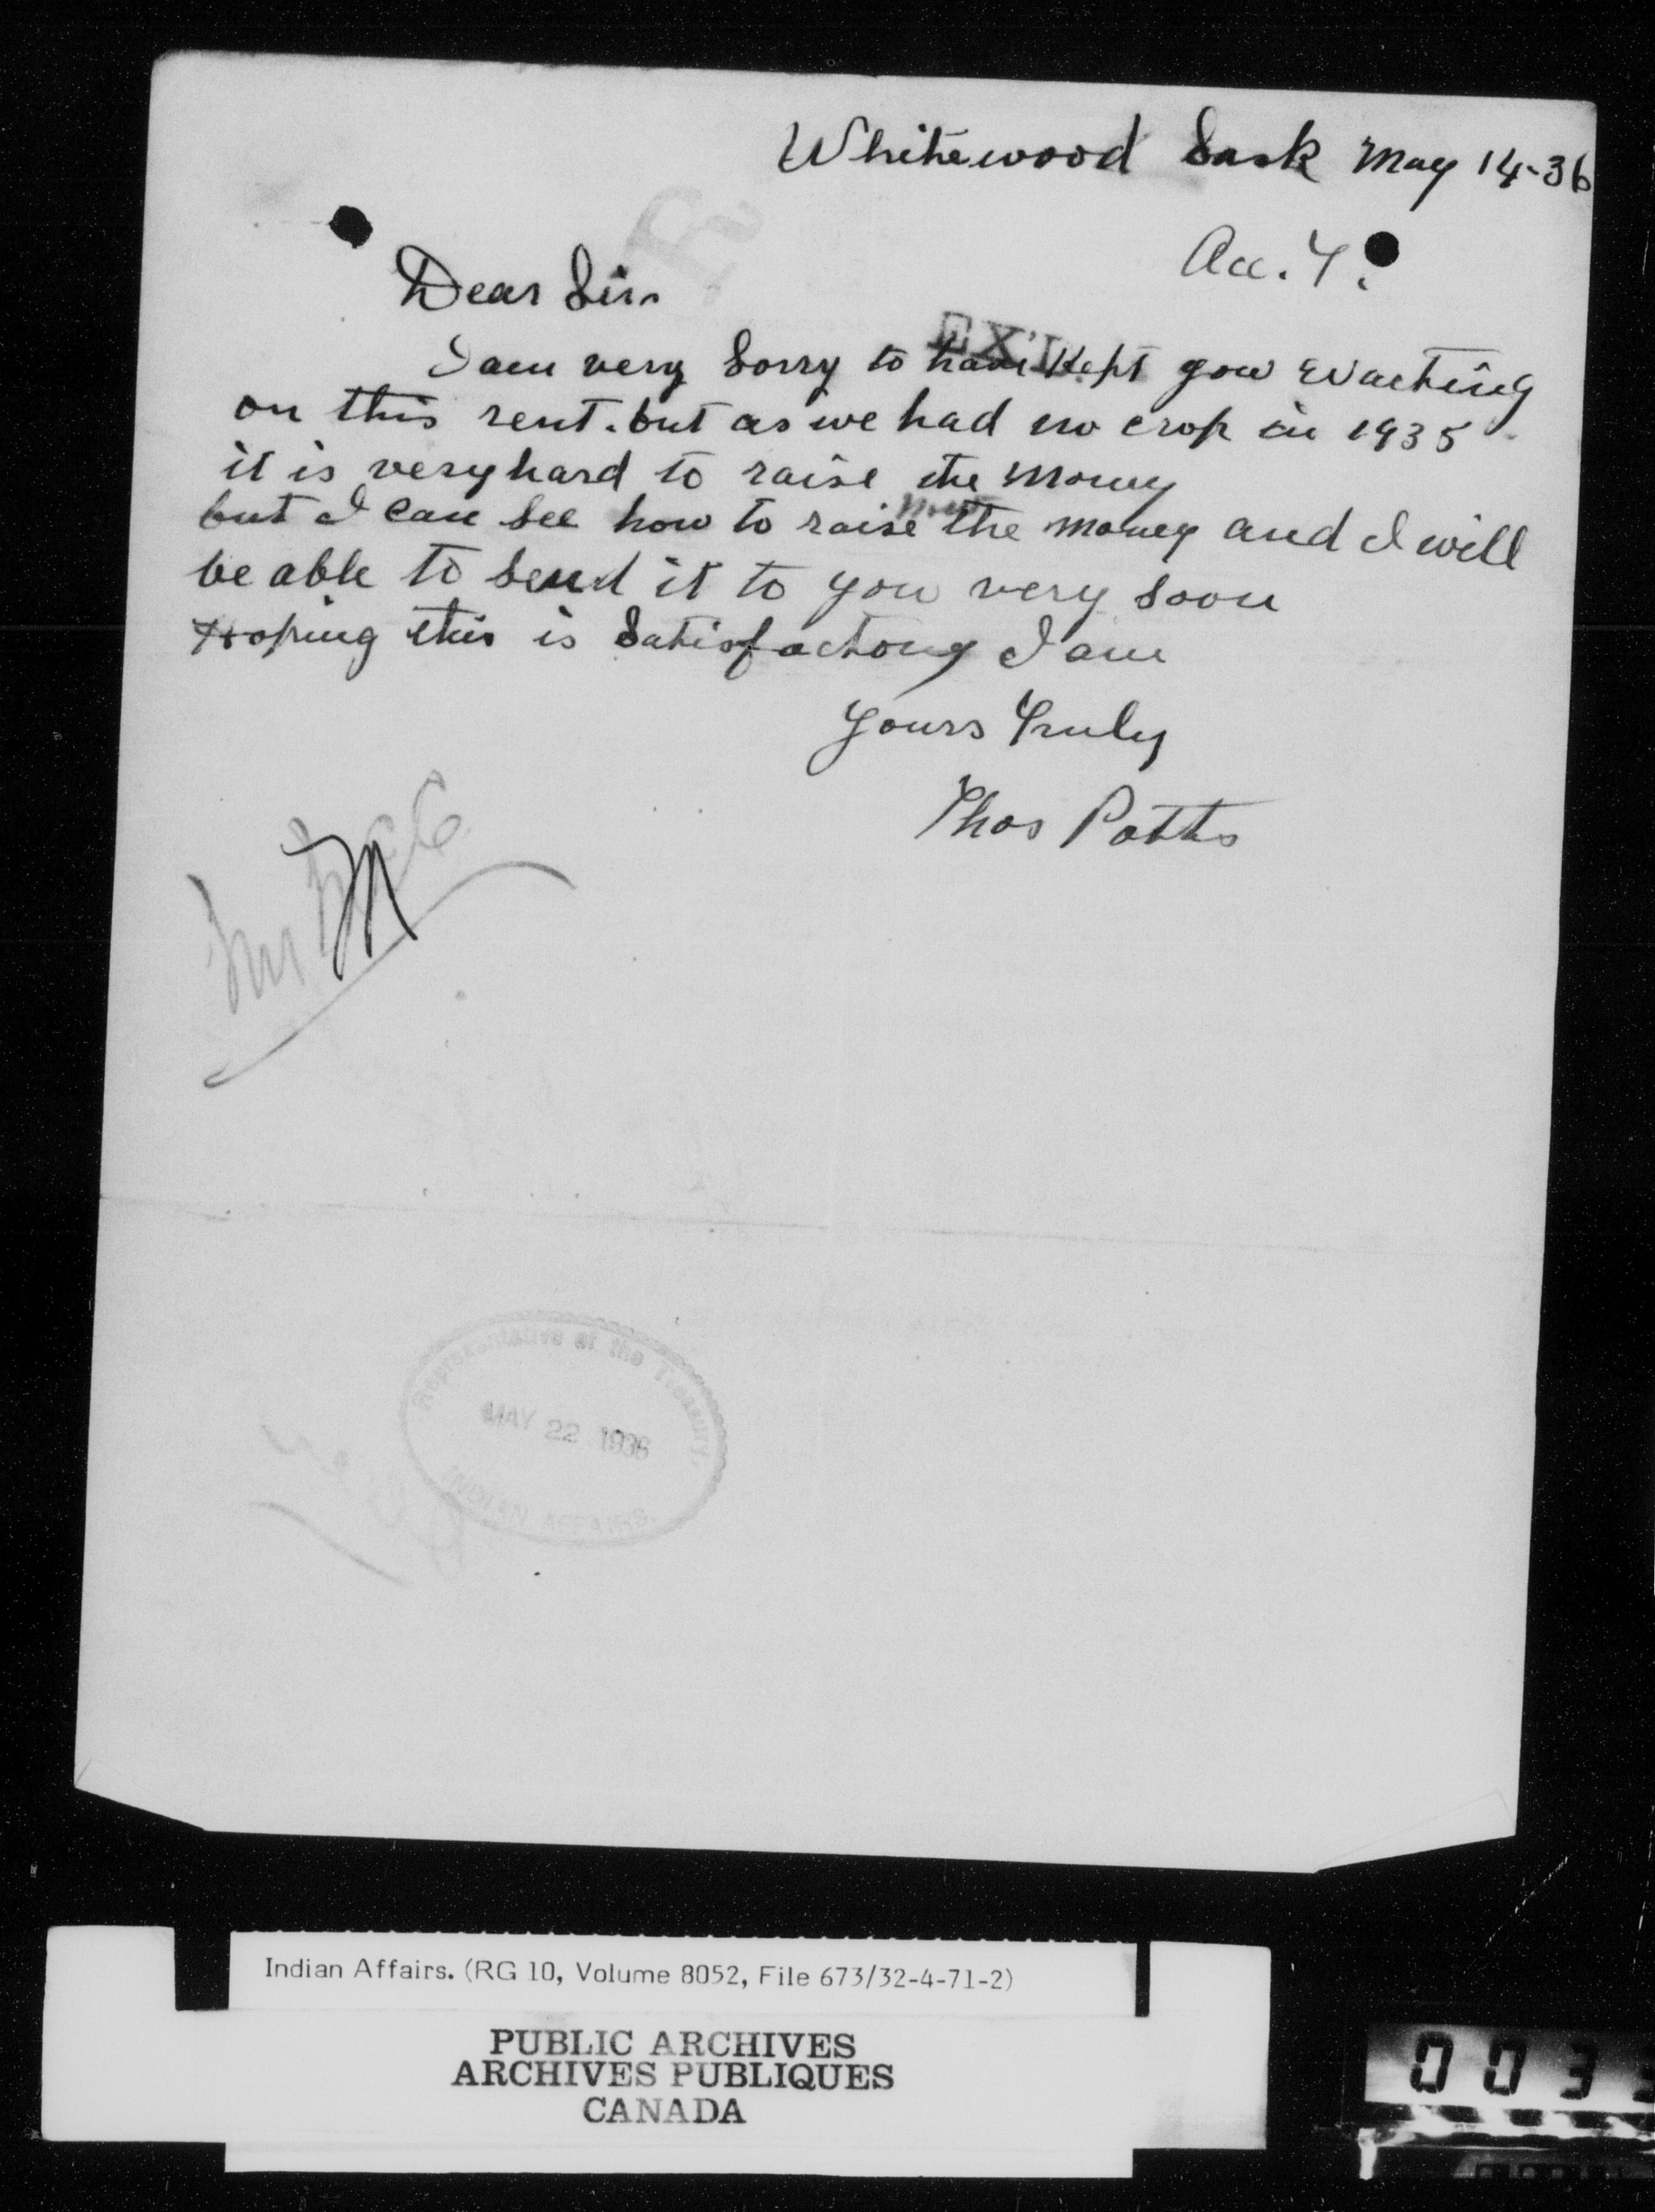 Whitewood Sask May 14-36
Acc. 7
Dear Sir.
I am very Sorry to have Kept you Waiting
on this rent. but as we had no crop in 1935
it is very hard to raise the Money
but I Can See how to raise the money and I will
be able to Send it to you very soon
Hoping this is Satisfactory I am
Yours Truly
Thos Potts
Representative of the Treasury
MAY 22 1936
INDIAN AFFAIRS.
Indian Affairs. (RG 10, Volume 8052, File 673/32-4-71-2)
PUBLIC ARCHIVES
ARCHIVES PUBLIQUES
CANADA
003